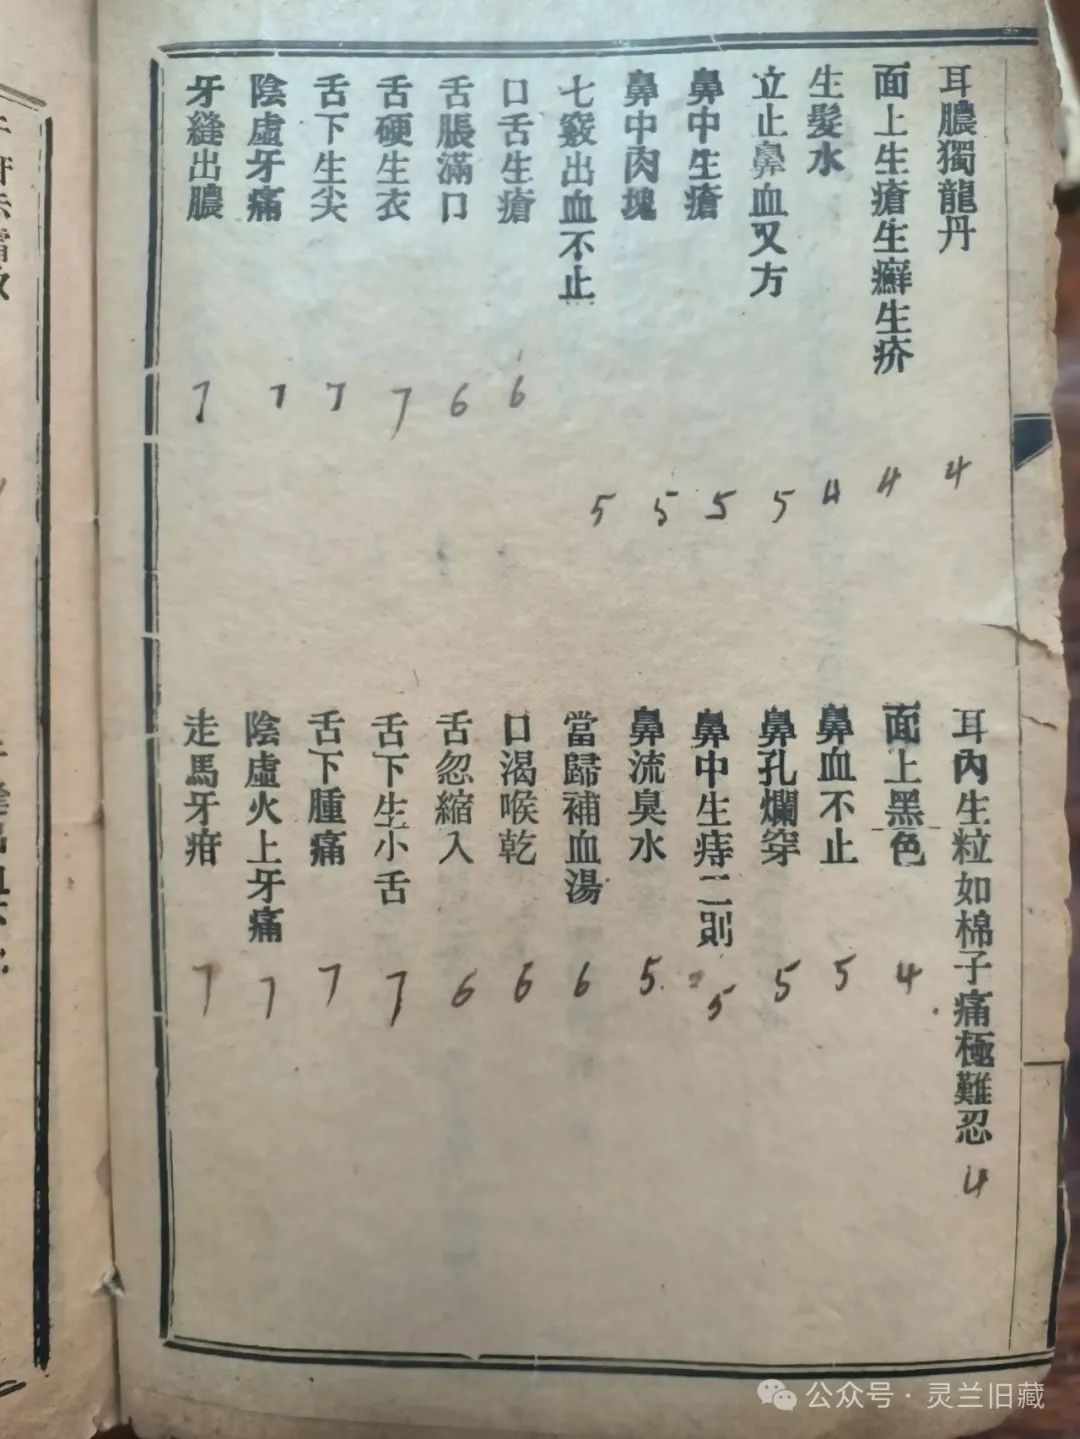 耳膿獨龍丹 4
耳內生粒如棉子痛極難忍 4
面上生瘡生癬生疥 4
面上黑色 4
生髮水 4
鼻血不止 5
立止鼻血又方 5
鼻孔爛穿 5
鼻中生瘡 5
鼻中生痔二則 5
鼻中肉塊 5
鼻流臭水 5
七竅出血不止 5
當歸補血湯 6
口舌生瘡 6
口渴喉乾 6
舌脹滿口 6
舌忽縮入 6
舌硬生衣 7
舌下生小舌 7
舌下生尖 7
舌下腫痛 7
陰虛牙痛 7
陰虛火上牙痛 7
牙縫出膿 7
走馬牙疳 7
公众号·灵兰旧藏